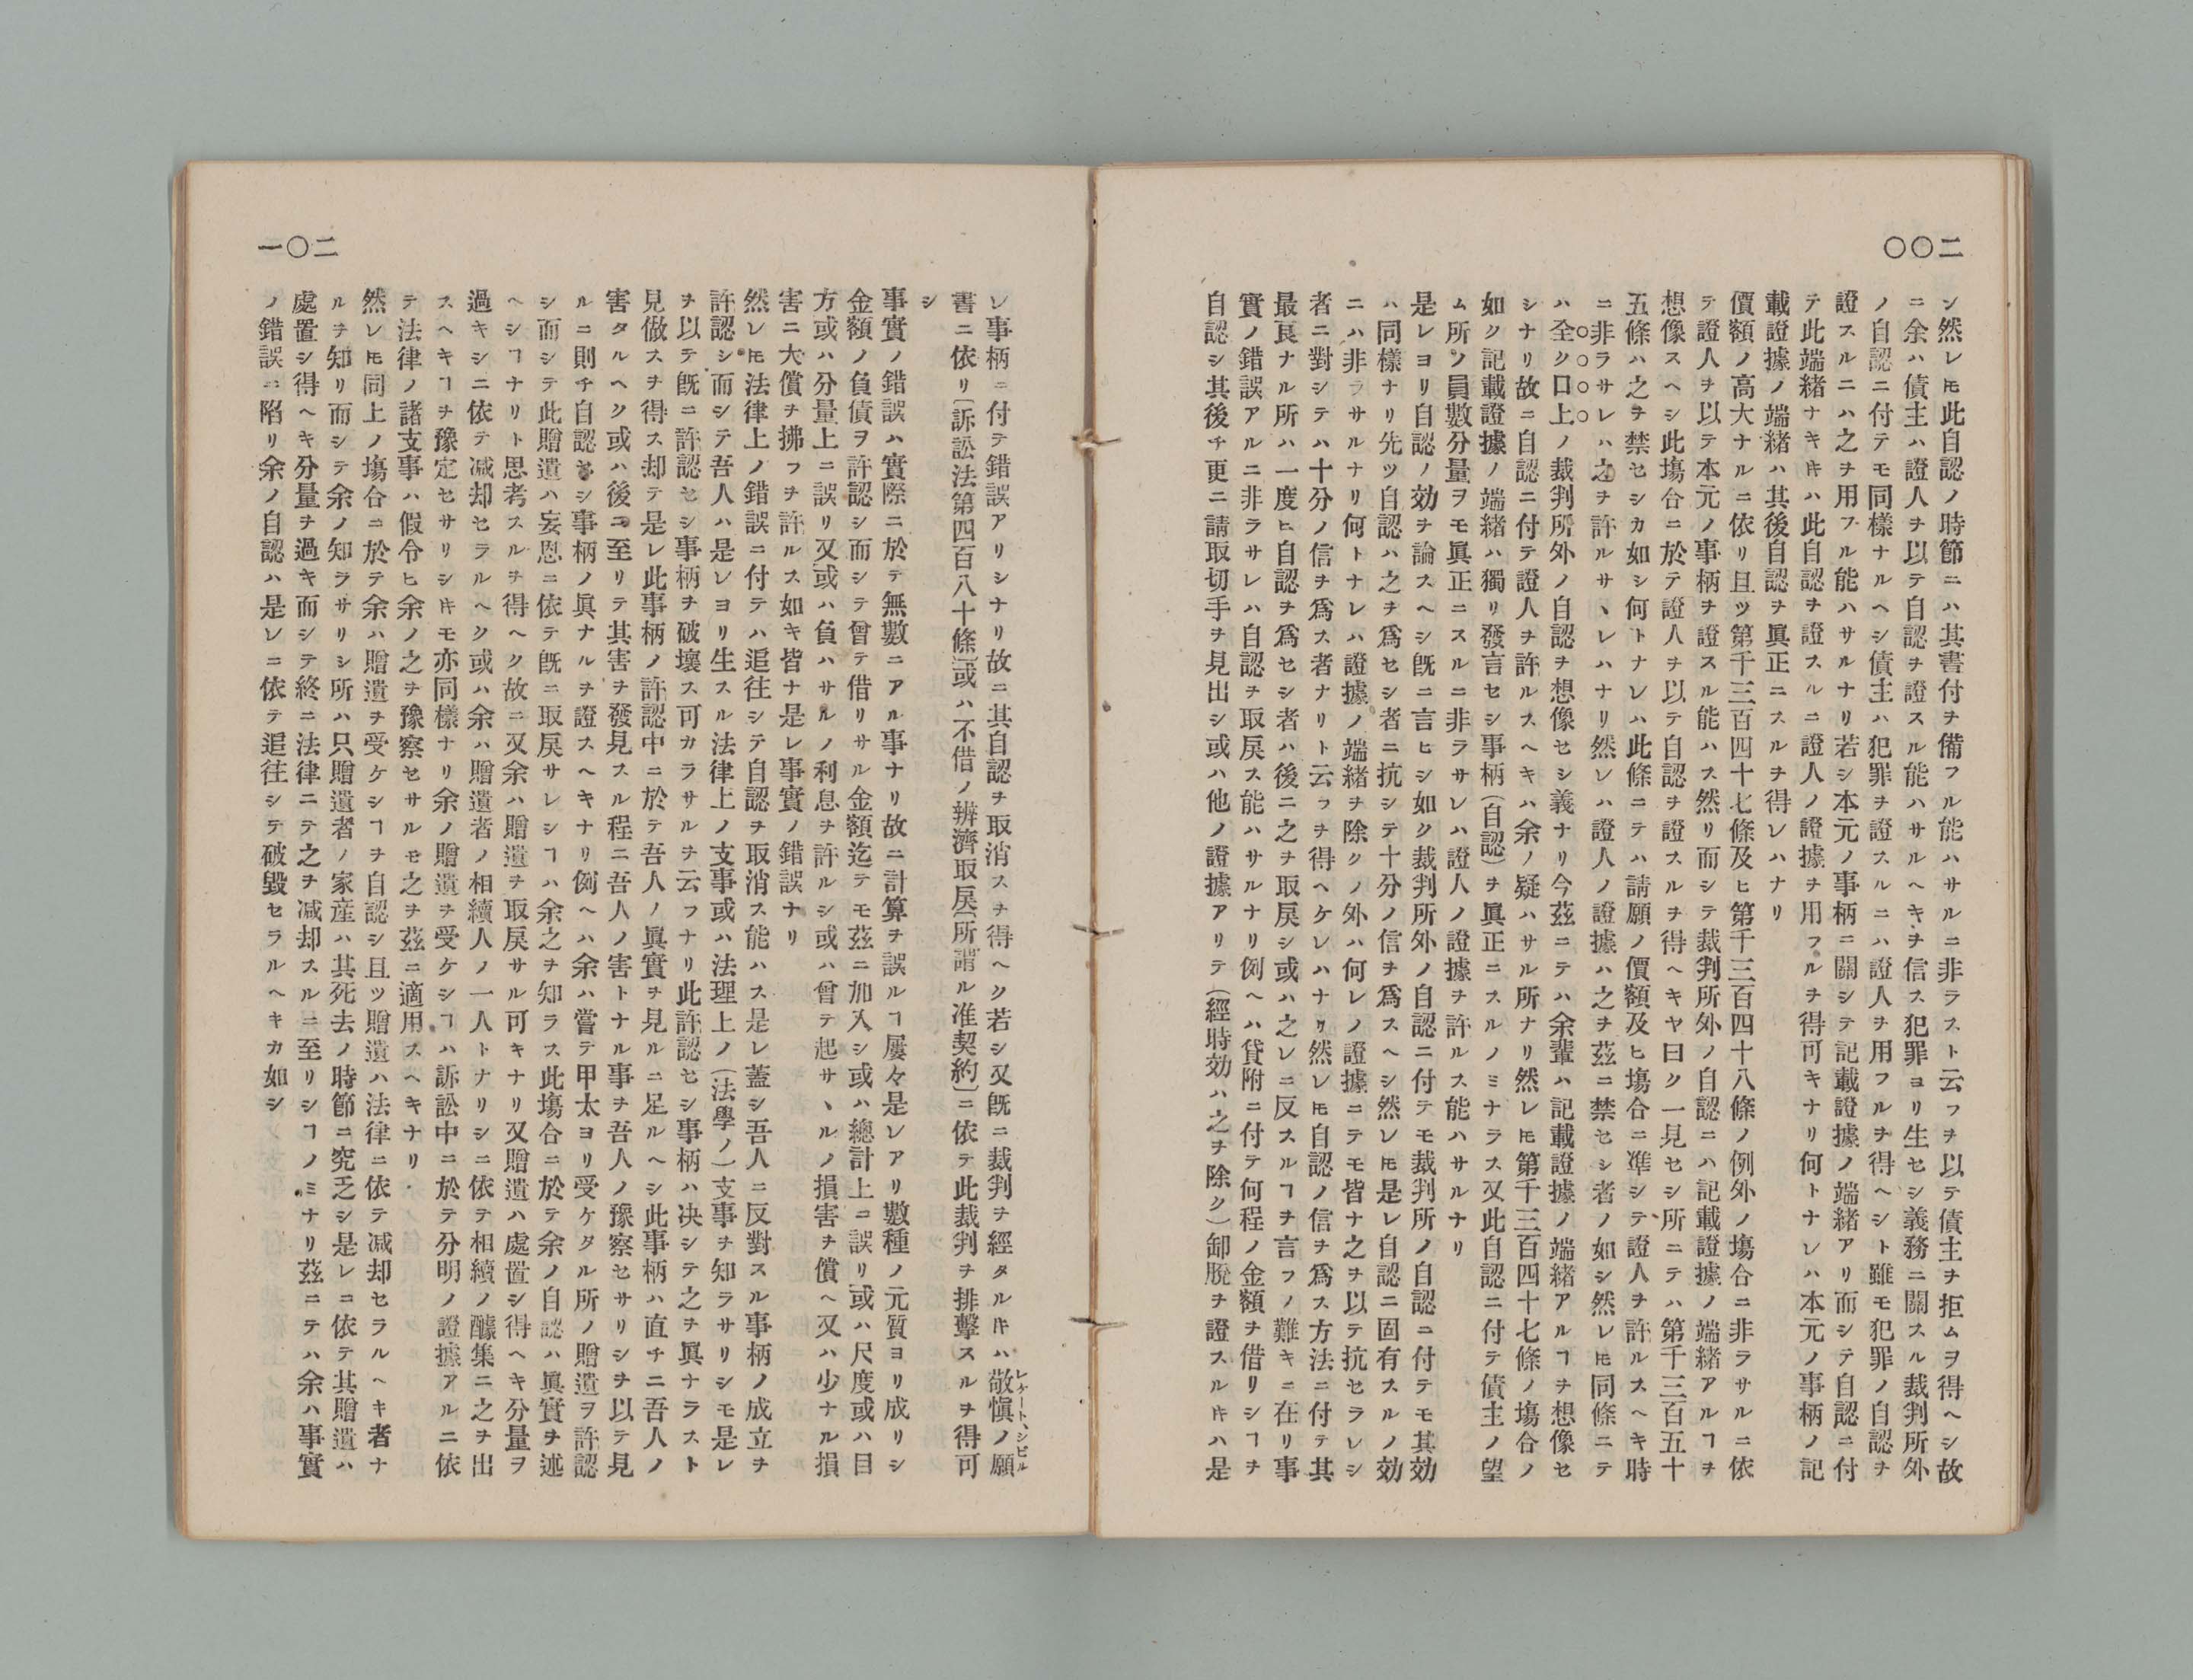 二〇〇
ン然レ𪜈此自認ノ時節ニハ其書付ヲ備フル能ハサルニ非ラスト云フヲ以テ債主ヲ拒ムヲ得ヘシ故
ニ余ハ債主ハ證人ヲ以テ自認ヲ證スル能ハサルヘキヲ信ス犯罪ヨリ生セシ義務ニ關スル裁判所外
ノ自認ニ付テモ同樣ナルヘシ債主ハ犯罪ヲ證スルニハ證人ヲ用フルヲ得ヘシト雖モ犯罪ノ自認ヲ
證スルニハ之ヲ用フル能ハサルナリ若シ本元ノ事柄ニ關シテ記載證據ノ端緒アリ而シテ自認ニ付
テ此端緒ナキ𪜈ハ此自認ヲ證スルニ證人ノ證據ヲ用フルヲ得可キナリ何トナレハ本元ノ事柄ノ記
載證據ノ端緒ハ其後自認ヲ眞正ニスルヲ得レハナリ
價額ノ高大ナルニ依リ且ツ第千三百四十七條及ヒ第千三百四十八條ノ例外ノ塲合ニ非ラサルニ依
テ證人ヲ以テ本元ノ事柄ヲ證スル能ハス然リ而シテ裁判所外ノ自認ニハ記載證據ノ端緒アルヿヲ
想像スヘシ此塲合ニ於テ證人ヲ以テ自認ヲ證スルヲ得ヘキヤ曰ク一見セシ所ニテハ第千三百五十
五條ハ之ヲ禁セシカ如シ何トナレハ此條ニテハ請願ノ價額及ヒ塲合ニ準シテ證人ヲ許ルスヘキ時
ニ非ラサレハ之ヲ許ルサヽレハナリ然レハ證人ノ證據ハ之ヲ茲ニ禁セシ者ノ如シ然レ𪜈同條ニテ
ハ全ク口上ノ裁判所外ノ自認ヲ想像セシ義ナリ今茲ニテハ余輩ハ記載證據ノ端緒アルヿヲ想像セ
シナリ故ニ自認ニ付テ證人ヲ許ルスヘキハ余ノ疑ハサル所ナリ然レ𪜈第千三百四十七條ノ塲合ノ
如ク記載證據ノ端緒ハ獨リ發言セシ事柄(自認)ヲ眞正ニスルノミナラス又此自認ニ付テ債主ノ望
ム所ノ員數分量ヲモ眞正ニスルニ非ラサレハ證人ノ證據ヲ許ルス能ハサルナリ
是レヨリ自認ノ効ヲ論スヘシ既ニ言ヒシ如ク裁判所外ノ自認ニ付テモ裁判所ノ自認ニ付テモ其効
ハ同樣ナリ先ツ自認ハ之ヲ爲セシ者ニ抗シテ十分ノ信ヲ爲スヘシ然レ𪜈是レ自認ニ固有スルノ効
ニハ非ラサルナリ何トナレハ證據ノ端緒ヲ除クノ外ハ何レノ證據ニテモ皆ナ之ヲ以テ抗セラレシ
者ニ對シテハ十分ノ信ヲ爲ス者ナリト云フヲ得ヘケレハナリ然レ𪜈自認ノ信ヲ爲ス方法ニ付テ其
最良ナル所ハ一度ヒ自認ヲ爲セシ者ハ後ニ之ヲ取戾シ或ハ之レニ反スルヿヲ言フノ難キニ在リ事
實ノ錯誤アルニ非ラサレハ自認ヲ取戾ス能ハサルナリ例ヘハ貸附ニ付テ何程ノ金額ヲ借リシヿヲ
自認シ其後チ更ニ請取切手ヲ見出シ或ハ他ノ證據アリテ(經時効ハ之ヲ除ク)卸脫ヲ證スル𪜈ハ是
二〇一
レ事柄ニ付テ錯誤アリシナリ故ニ其自認ヲ取消スヲ得ヘク若シ又既ニ裁判ヲ經タル𪜈ハ敬愼ノ願
レケートシビル
書ニ依リ(訴訟法第四百八十條)或ハ不借ノ辨濟取戾(所謂ル准契約)ニ依テ此裁判ヲ排擊スルヲ得可
シ
事實ノ錯誤ハ實際ニ於テ無數ニアル事ナリ故ニ計算ヲ誤ルヿ屢々是レアリ數種ノ元質ヨリ成リシ
金額ノ負債ヲ許認シ而シテ曾テ借リサル金額迄テモ茲ニ加入シ或ハ總計上ニ誤リ或ハ尺度或ハ目
方或ハ分量上ニ誤リ又或ハ負ハサルノ利息ヲ許ルシ或ハ曾テ起サヽルノ損害ヲ償ヘ又ハ少ナル損
害ニ大償ヲ拂フヲ許ルス如キ皆ナ是レ事實ノ錯誤ナリ
然レ𪜈法律上ノ錯誤ニ付テハ追往シテ自認ヲ取消ス能ハス是レ蓋シ吾人ニ反對スル事柄ノ成立ヲ
許認シ而シテ吾人ハ是レヨリ生スル法律上ノ支事或ハ法理上ノ(法學ノ)支事ヲ知ラサリシモ是レ
ヲ以テ既ニ許認セシ事柄ヲ破壞ス可カラサルヲ云フナリ此許認セシ事柄ハ决シテ之ヲ眞ナラスト
見做スヲ得ス却テ是レ此事柄ノ許認中ニ於テ吾人ノ眞實ヲ見ルニ足ルヘシ此事柄ハ直チニ吾人ノ
害タルヘク或ハ後ニ至リテ其害ヲ發見スル程ニ吾人ノ害トナル事ヲ吾人ノ豫察セサリシヲ以テ見
ルニ則チ自認セシ事柄ノ眞ナルヲ證スヘキナリ例ヘハ余ハ嘗テ甲太ヨリ受ケタル所ノ贈遺ヲ許認
シ而シテ此贈遺ハ妄恩ニ依テ既ニ取戾サレシヿハ余之ヲ知ラス此塲合ニ於テ余ノ自認ハ眞實ヲ述
ヘシヿナリト思考スルヲ得ヘク故ニ又余ハ贈遺ヲ取戾サル可キナリ又贈遺ハ處置シ得ヘキ分量ヲ
過キシニ依テ减却セラルヘク或ハ余ハ贈遺者ノ相續人ノ一人トナリシニ依テ相續ノ醵集ニ之ヲ出
スヘキヿヲ豫定セサリシ𪜈モ亦同樣ナリ余ノ贈遺ヲ受ケシヿハ訴訟中ニ於テ分明ノ證據アルニ依
テ法律ノ諸支事ハ假令ヒ余ノ之ヲ豫察セサルモ之ヲ茲ニ適用スヘキナリ
然レ𪜈同上ノ塲合ニ於テ余ハ贈遺ヲ受ケシヿヲ自認シ且ツ贈遺ハ法律ニ依テ减却セラルヘキ者ナ
ルヲ知リ而シテ余ノ知ラサリシ所ハ只贈遺者ノ家産ハ其死去ノ時節ニ究乏シ是レニ依テ其贈遺ハ
處置シ得ヘキ分量ヲ過キ而シテ終ニ法律ニテ之ヲ减却スルニ至リシヿノミナリ茲ニテハ余ハ事實
ノ錯誤ニ陷リ余ノ自認ハ是レニ依テ追往シテ破毀セラルヘキカ如シ